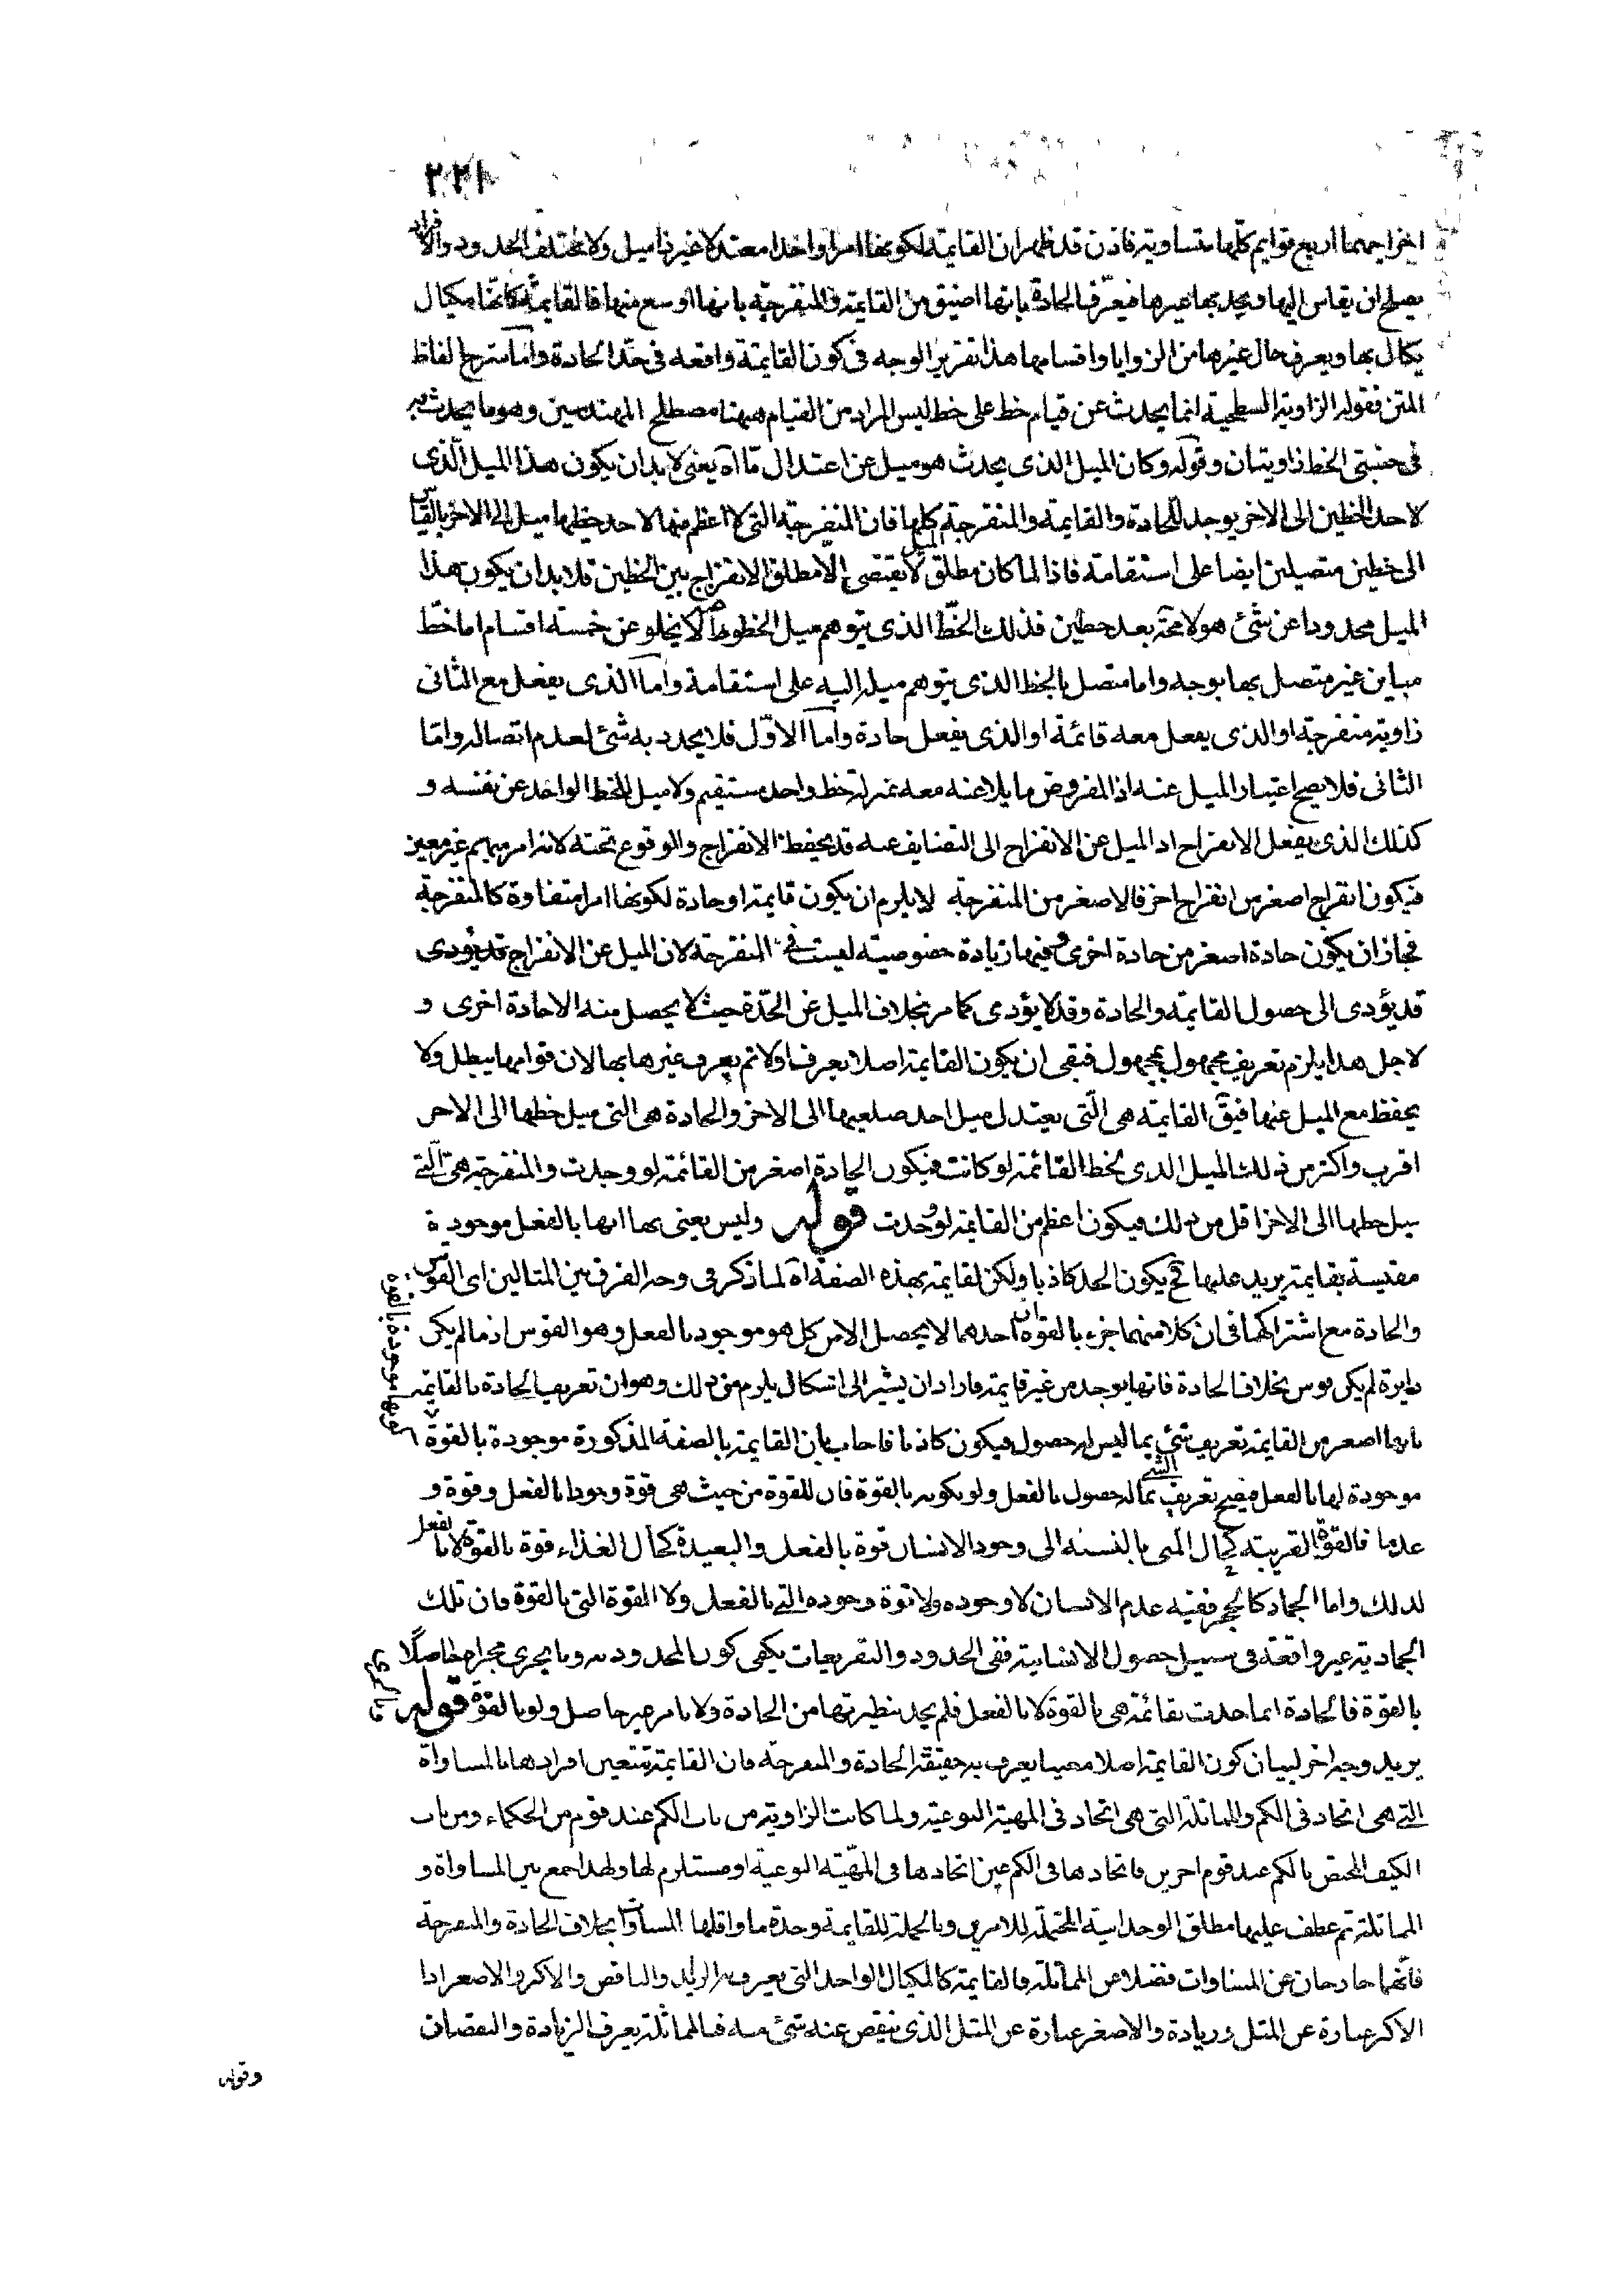 ٢٢١
اخراجهما اربع قوايم كلها متساوية فاذن قد ظهر ان القايمة لكونها امرا واحدا معتدلا غير ذا ميل ولا مختلف الحدود والافراد
يصلح ان يقاس اليها ويحد بها غيرها فيعرف الحادة بانها اضيق من القايمة والمنفرجة بانها اوسع منها فالقايمة كانها مكيال
يكال بها ويعرف حال غيرها من الزوايا واقسامها هذا تقرير الوجه فى كون القايمة واقعه فى حد الحادة واما شرح الفاظ
المتن فقوله الزاوية السطحية انما يحدث عن قيام خط على خط ليس المراد من القيام ههنا مصطلح المهندسين وهو ما يحدث به
فى جنبتى الخط زاويتان وقوله وكان الميل الذى يحدث هو ميل عن اعتدال ما آه يعنى لا بد ان يكون هذا الميل الذى
لاحد الخطين الى الاخر يوجد للحادة والقايمة والمنفرجة كلها فان المنفرجة التى لا اعظم منها لاحد خطيها ميل الى الاخر بالقياس
الى خطين متصلين ايضا على استقامة فاذا لما كان مطلق الميل لا يقتضى الا مطلق الانفراج بين الخطين فلا بد ان يكون هذا
الميل محدودا عن شئ هو لا محة بعد خطين فذلك الخط الذى يتوهم ميل الخطوط لا يخلو عن خمسة اقسام اما خط
مباين غير متصل بها بوجه واما متصل بالخط الذى يتوهم ميله اليه على استقامة واما الذى يفعل مع الثانى
زاوية منفرجة او الذى يفعل معه قائمة او الذى يفعل حادة واما الاول فلا يحدد به شئ لعدم اتصاله واما
الثانى فلا يصح اعتبار الميل عنه اذ المفروض ما يلاعنه معه بمنزلة خط واحد مستقيم ولا ميل للخط الواحد عن نفسه و
كذلك الذى يفعل الانفراج اذ الميل عن الانفراج الى التضايف عنه قد يحفظ الانفراج والوقوع تحته لانه امر مبهم غير معين
فيكون انفراج اصغر من انفراج اخر فالاصغر من المنفرجة لا يلزم ان يكون قايمة او حادة لكونها امرا متفاوة كالمنفرجة
فجاز ان يكون حادة اصغر من حادة اخرى وفيها زيادة خصوصية ليست فى المنفرجة لان الميل عن الانفراج قد يؤدى
قد يؤدى الى حصول القايمة والحادة وقد لا يؤدى كما مر بخلاف الميل عن الحدة حيث لا يحصل منه الا حادة اخرى و
لاجل هذا يلزم تعريف مجهول بمجهول فبقى ان يكون القايمة اصلا يعرف اولا ثم يعرف غيرها بها لان قوامها يبطل ولا
يحفظ مع الميل عنها فيق القايمة هى التى يعتدل ميل احد ضلعيها الى الاخر والحادة هى التى ميل خطها الى الاخر
اقرب واكثر من ذلك الميل الذى لخط القائمة لو كانت فيكون الحادة اصغر من القائمة لو وجدت والمنفرجة هى التى
ميل خطها الى الاخر اقل من ذلك فيكون اعظم من القايمة لو وجدت قوله وليس يعنى بها انها بالفعل موجودة
مقيسة بقايمة يزيد عليها فح يكون الحد كاذبا ولكن لقايمة بهذه الصفة آه لما ذكر فى وجه الفرق بين المثالين اى القوس
والحادة مع اشتراكهما فى ان كلا منهما جزء بالقوة ان احدهما لا يحصل الا من كل هو موجود بالفعل وهو القوس اذ ما لم يكن
دايرة لم يكن قوس بخلاف الحادة فانها يوجد من غير قايمة فاراد ان يشير الى اشكال يلزم من ذلك وهو ان تعريف الحادة بالقايمة
بانها اصغر من القايمة تعريف شئ بما ليس له حصول فيكون كاذبا فاجاب بان القايمة بالصفة المذكورة موجودة بالقوة
كونها موجودة بالقوة
موجودة لها بالفعل فيصح تعريف الشئ بما له حصول بالفعل ولو بكونه بالقوة فان للقوة من حيث هى قوة وجودا بالفعل وقوة و
عدما فالقوة القريبة كحال المنى بالنسبة الى وجود الانسان قوة بالفعل والبعيدة كحال الغذاء قوة بالقوة لا بالفعل
لذلك واما الجماد كالحجر ففيه عدم الانسان لا وجوده ولا قوة وجوده التى بالفعل ولا القوة التى بالقوة فان تلك
الجمادية غير واقعة فى سبيل حصول الانسانية ففى الحدود والتعريفات يكفى كون المحدود به وما يجرى مجراه حاصلا
بالقوة فالحادة انما حدت بقائمة هى بالقوة لا بالفعل فلم يحد بنظيرتها من الحادة ولا بامر غير حاصل ولو بالقوة قوله
يريد وجه اخر لبيان كون القايمة اصلا معينا يعرف به حقيقة الحادة والمنفرجة فان القايمة تتعين افرادها بالمساواة
التى هى اتحاد فى الكم والمماثلة التى هى اتحاد فى المهية النوعية ولما كانت الزاوية من باب الكم عند قوم من الحكماء ومن باب
الكيف المختص بالكم عند قوم اخرين فاتحادها فى الكم عين اتحادها فى المهية النوعية او مستلزم لها ولهذا جمع بين المساواة و
المماثلة ثم عطف عليها مطلق الوحدانية المحتملة للامرين وبالجملة للقايمة وحدة ما واقلها المساواة بخلاف الحادة والمنفرجة
فانهما خارجان عن المساوات فضلا عن المماثلة فالقايمة كالمكيال الواحد التى يعرف به الزايد والناقص والاكبر والاصغر اذا
الاكبر عبارة عن المثل وزيادة والاصغر عبارة عن المثل الذى ينقص عنه شئ منه فبالمماثلة يعرف الزيادة والنقصان
وقوله